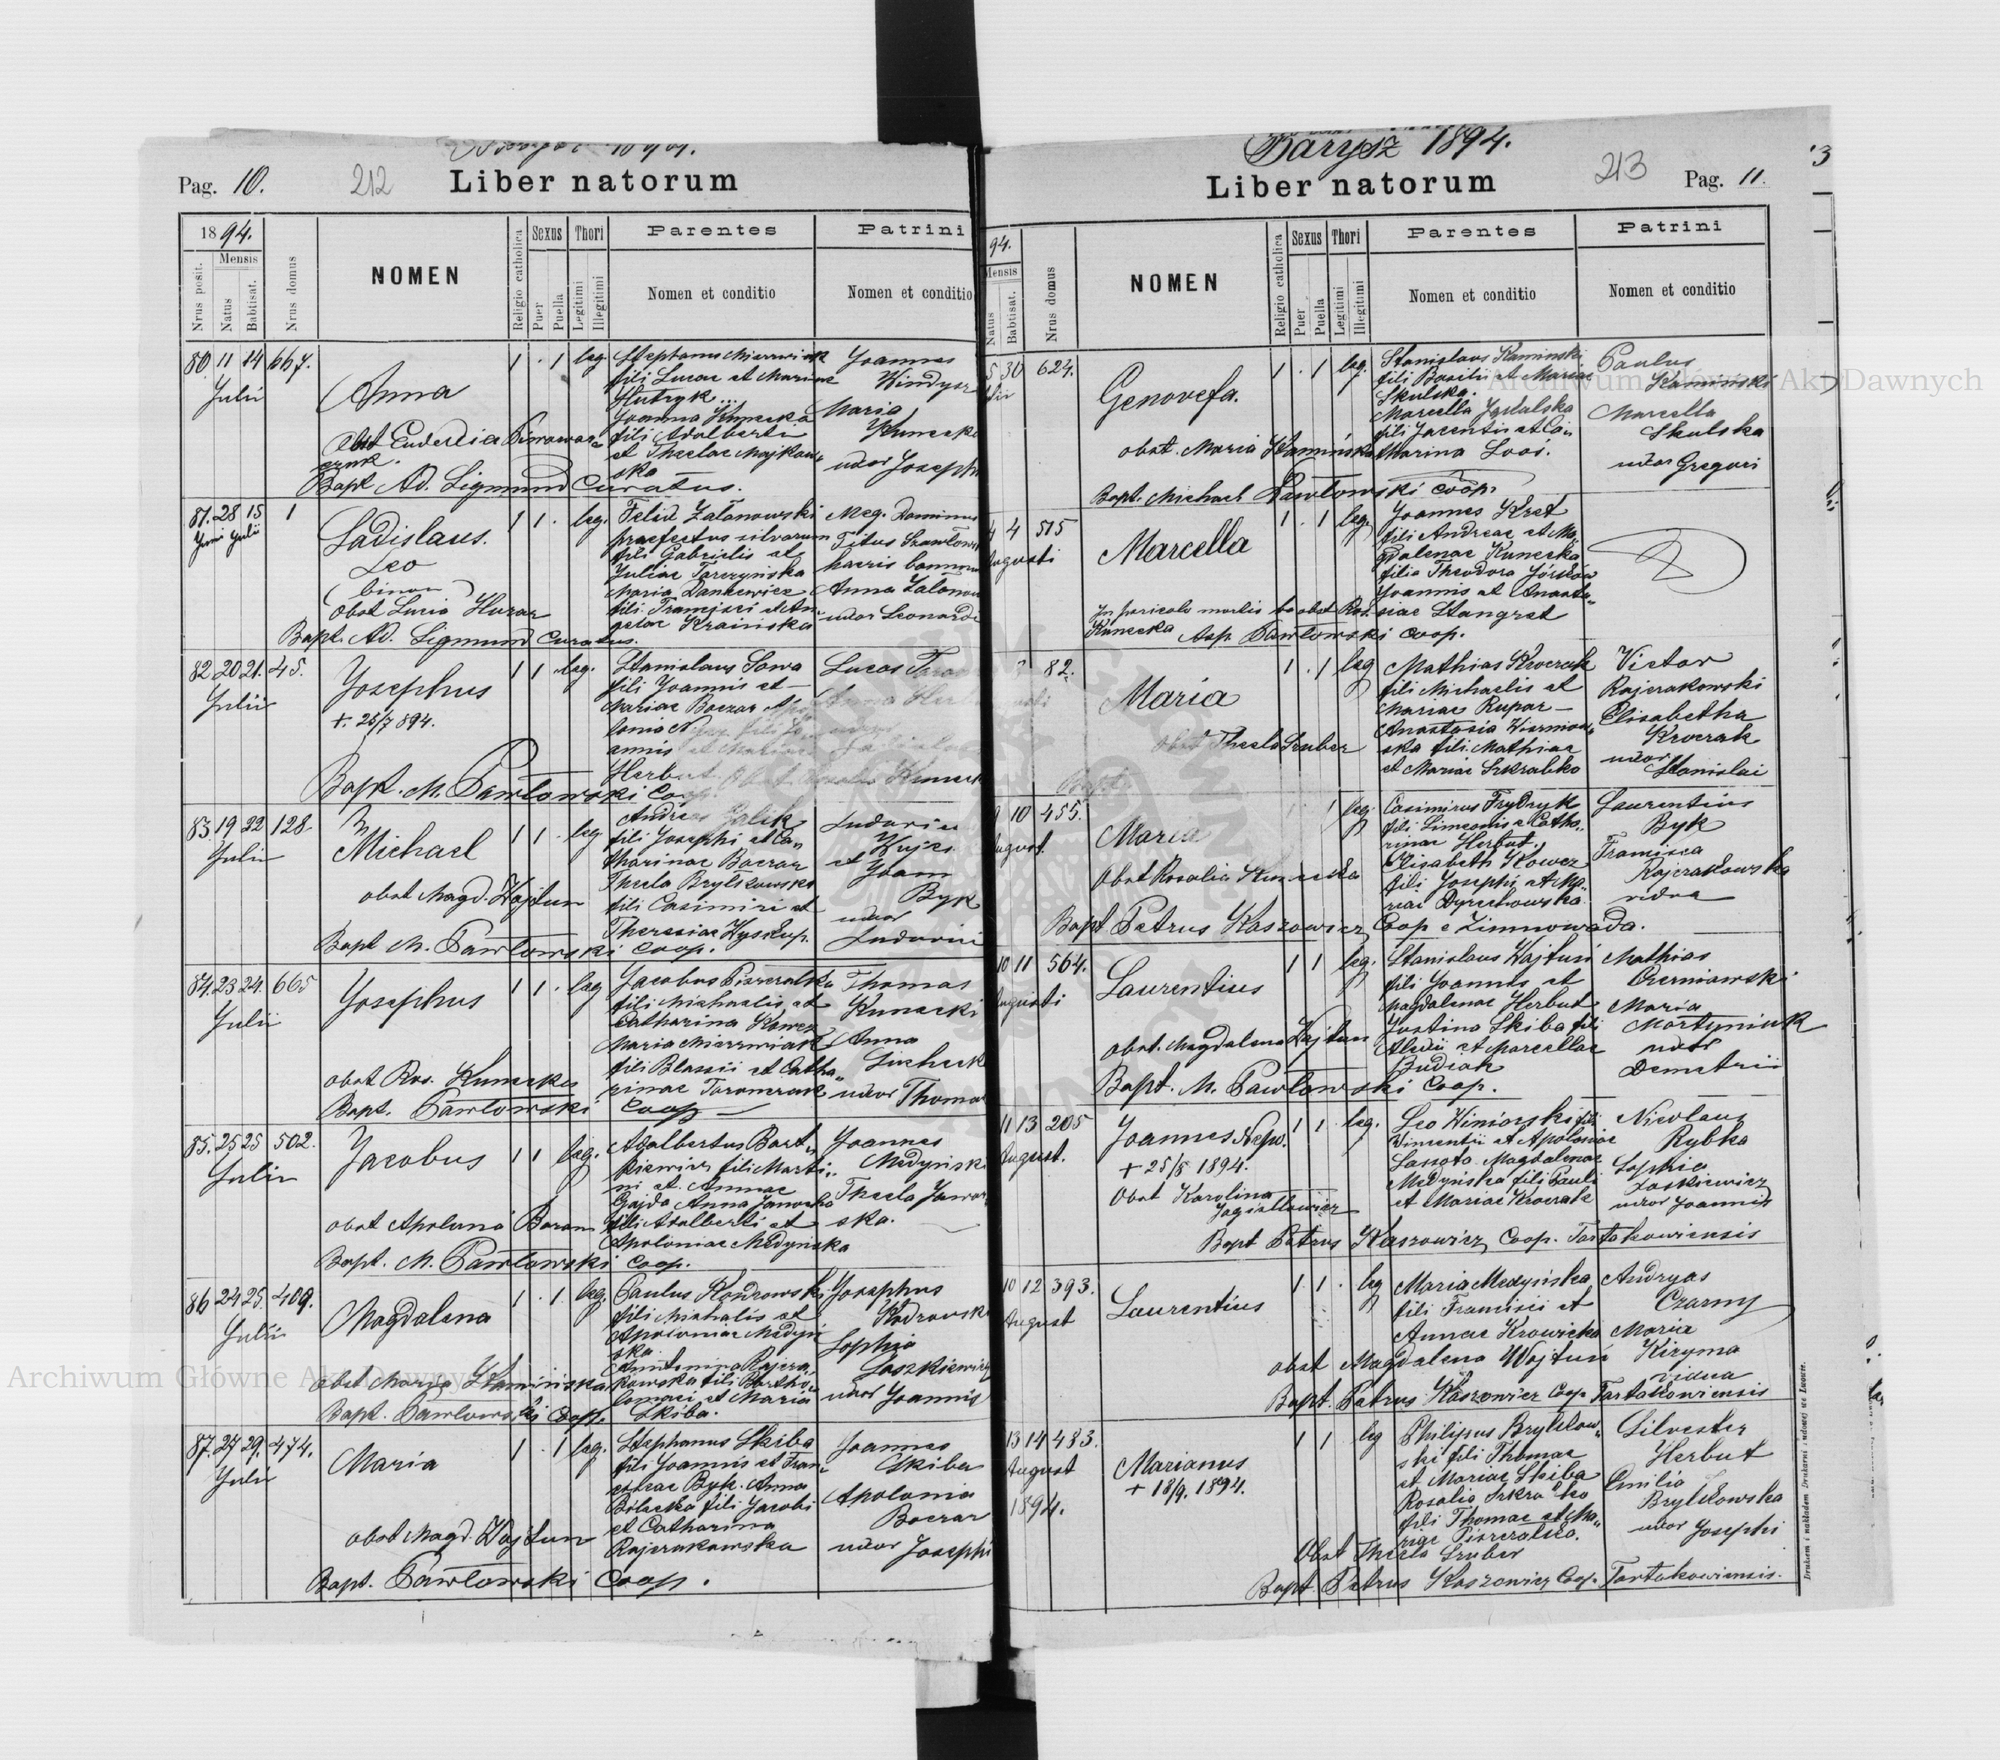 Pag. 10.
212
Liber natorum
1894.
Mensis
Nrus posit.
Natus
Babtisat.
Nrus domus
NOMEN
Religio catholica
Sexus
Puer
Puella
Thori
Legitimi
Illegitimi
Parentes
Nomen et conditio
Patrini
Nomen et conditio
80 11 14 667.
Julii
Anna
1 . 1 leg.
fili Lucae et Mariae
Joanna Kunecka
fili Adalberti
et Theclae Majkow
ska
Joannes
Maria
Kunecka
uxor Josephi
Bapt. Ad. Sigmund Curatus.
81. 28 15 1
Juni Julii
Ladislaus.
Leo
(binom)
1 1 . leg.
Felix Zalonowski
praefectus silvarum
fili Gabrielis et
Juliae Tarczyńska
Maria Dankewicz
fili. Francisci et An
gelae Krainska
Meg. Dominus
Titus
haeris bonorum
Anna
uxor Leonardi
Obst Lucia Huzar
Bapt. Ad. Sigmund Curatus.
82. 20 21. 45.
Julii
Josephus
+. 25/7 894.
1 1 . leg.
Stanislaus Sowa
fili Joannis et
Mariae Boczar
Herbut
Lucas
Anna
Bapt. M. Pawlowski Coop.
83. 19 22 128
Julii
Michael
1 1 . leg
Andreas Galik
fili Josephi et Ca
tharinae Boczar
Thecla Brytkowska
fili Casimiri et
Theresiae Wyskup.
Ludovicus
et
Joana
Byk
uxor
Ludovici
obst Magd. Wojtun
Bapt M. Pawlowski Coop.
84. 23 24. 665
Julii
Josephus
1 1 . leg
fili Michaelis et
Catharina Kowcz
Maria Mierzwiak
fili Blasii et Catha
rinae Taramczuk
Thomas
Kunecki
Anna
uxor Thomae
obst Ros. Kunecka
Bapt. Pawlowski Coop
85. 25 25 502.
Julii
Jacobus
1 1 leg.
Adalbertus Bart
kiewicz fili Marti
ni et Annae
Gajda Anna Janocka
fili Adalberti et
Apoloniae Medynska
Joannes
Medynski
Thecla Jawor
ska.
obst Apolonia Baran
Bapt. M. Pawlowski Coop.
86 24 25. 409.
Julii
Magdalena
1 . 1 leg.
Paulus Kodrowski
fili Michalis et
Apoloniae Medyń
ska.
Antonina Rajcza
kowska fili Bartho
lomaei et Maria
Skiba.
Josephus
Kodrowski
Sophia
Laszkiewicz
uxor Joannis
obst Marya Kaminska
Bapt. Pawlowski Coop.
87. 27 29. 474.
Julii
Maria
1 . 1 leg.
Stephanus Skiba
fili Joannis et Fran
ciscae Byk. Anna
Bilecka fili Jacobi
et Catharina
Rajczakowska
Joannes
Skiba
Apolonia
Boczar
uxor Josephi
obst Magd. Wojtun
Bapt. Pawlowski Coop.
Barysz 1894.
Liber natorum
213
Pag. 11.
94.
Mensis
Natus
Babtisat.
Nrus domus
NOMEN
Religio catholica
Sexus
Puer
Puella
Thori
Legitimi
Illegitimi
Parentes
Nomen et conditio
Patrini
Nomen et conditio
30 624.
Genovefa.
1 . 1 leg.
Stanislaus Kaminski
fili Basilii et Mariae
Skulska.
Marcella
fili Jacentis et Ca
tharina Łoś.
Paulus
Kaminski
Marcella
Skulska
uxor Gregori
obst. Maria Kamińska
Bapt. Michael Pawlowski coop.
4 4 515
Augusti
Marcella
1 . 1 leg.
Joannes Kret
fili Andreae et Ma
gdalenae Kunecka
filia Theodora
Joannis et Anasta
siae Stangret
In periculo mortis bapt obst Ros.
Kunecka Asp Pawlowski coop.
82.
Maria
1 . 1 leg
Mathias Kroczak
fili Michaelis et
Mariae Rupar
Anastasia
ska fili Mathiae
et Mariae Szkrabko
Victor
Rajczakowski
Elisabetha
Kroczak
uxor
Stanislai
obst Thecla Gruber
Bapt.
9 10 455.
August.
Maria
1 leg.
Casimirus Frydryk
fili Simeonis et Catha
rinae Herbut.
Elisabeth Kowcz
fili Josephi et Ma
riae Dyrechowska
Laurentius
Byk
Francisca
Rajczakowska
vidua
Obst Rosalia Kunecka
Bapt Petrus Kaszowicz Coop e Zimnowoda.
10 11 564.
Augusti
Laurentius
1 1 leg.
Stanislaus Wojtuń
fili Joannis et
Magdalenae Herbut
Justina Skiba fili
Alexii et Marcellae
Budzak
Mathias
Czerniawski
Maria
Martyniuk
uxor
Demetrii
obst. Magdalena Wojtun
Bapt. M. Pawlowski Coop.
11 13 205
August.
Joannes Nep.
+ 25/8 1894.
1 1 . leg.
Leo Winiarski fili
Vincentii et Apoloniae
Lassota Magdalenae
Medyńska fili Pauli
et Mariae Kroczak
Nicolaus
Rybka
Sophia
Laskiewicz
uxor Joannis
Obst Karolina
Jagiellowicz
Bapt Petrus Kaszowicz Coop. Tartakowiensis
10 12 393.
August
Laurentius
1 1 . leg
Maria Medyńska
fili Francisci et
Annae Krowicka
Andryas
Czarny
Maria
Kiryma
vidua
obst Magdalena Wojtuń
Bapt. Petrus Kaszowicz Coop Tartakowiensis
13 14 483.
August
1894.
Marianus
+ 18/9. 1894.
1 1 leg
Philipus Brytkow
ski fili Thomae
et Mariae Skiba
Rosalia Szkrabko
fili Thomae et Ma
riae Piszczatka.
Silvester
Herbut
Emilia
Brytkowska
uxor Josephi
Obst Thecla Gruber
Bapt. Petrus Kaszowicz Coop. Tartakowiensis.
Archiwum Główne Akt Dawnych
Archiwum Główne Akt Dawnych